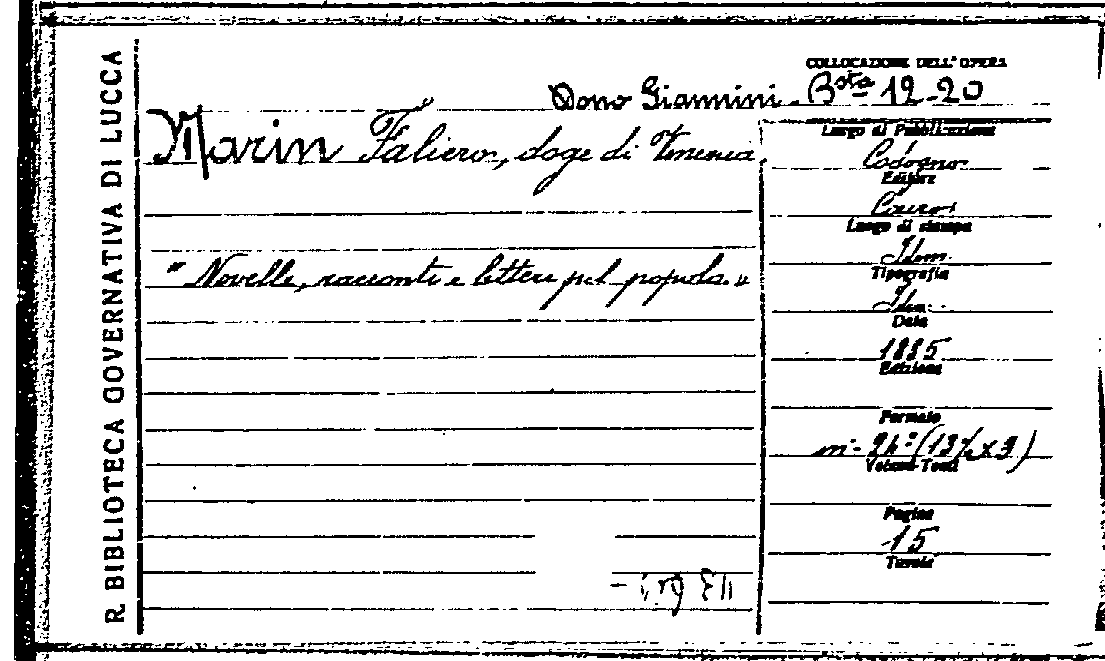 R. BIBLIOTECA GOVERNATIVA DI LUCCA
COLLOCAZIONE DELL'OPERA
Dono Giannini. Bsta 12-20
Marin Faliero, doge di Venezia.
"Novelle, racconti e lettere pel popolo."
Luogo di Pubblicazione
Codogno
Editore
Cairo
Luogo di stampa
Idem
Tipografia
Idem
Data
1885
Edizione
Formato
in-24º (13½ x 9)
Volumi-Tomi
Pagine
15
Tavole